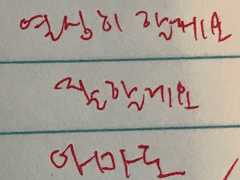 열심히 할게요
격도할게요
아마도